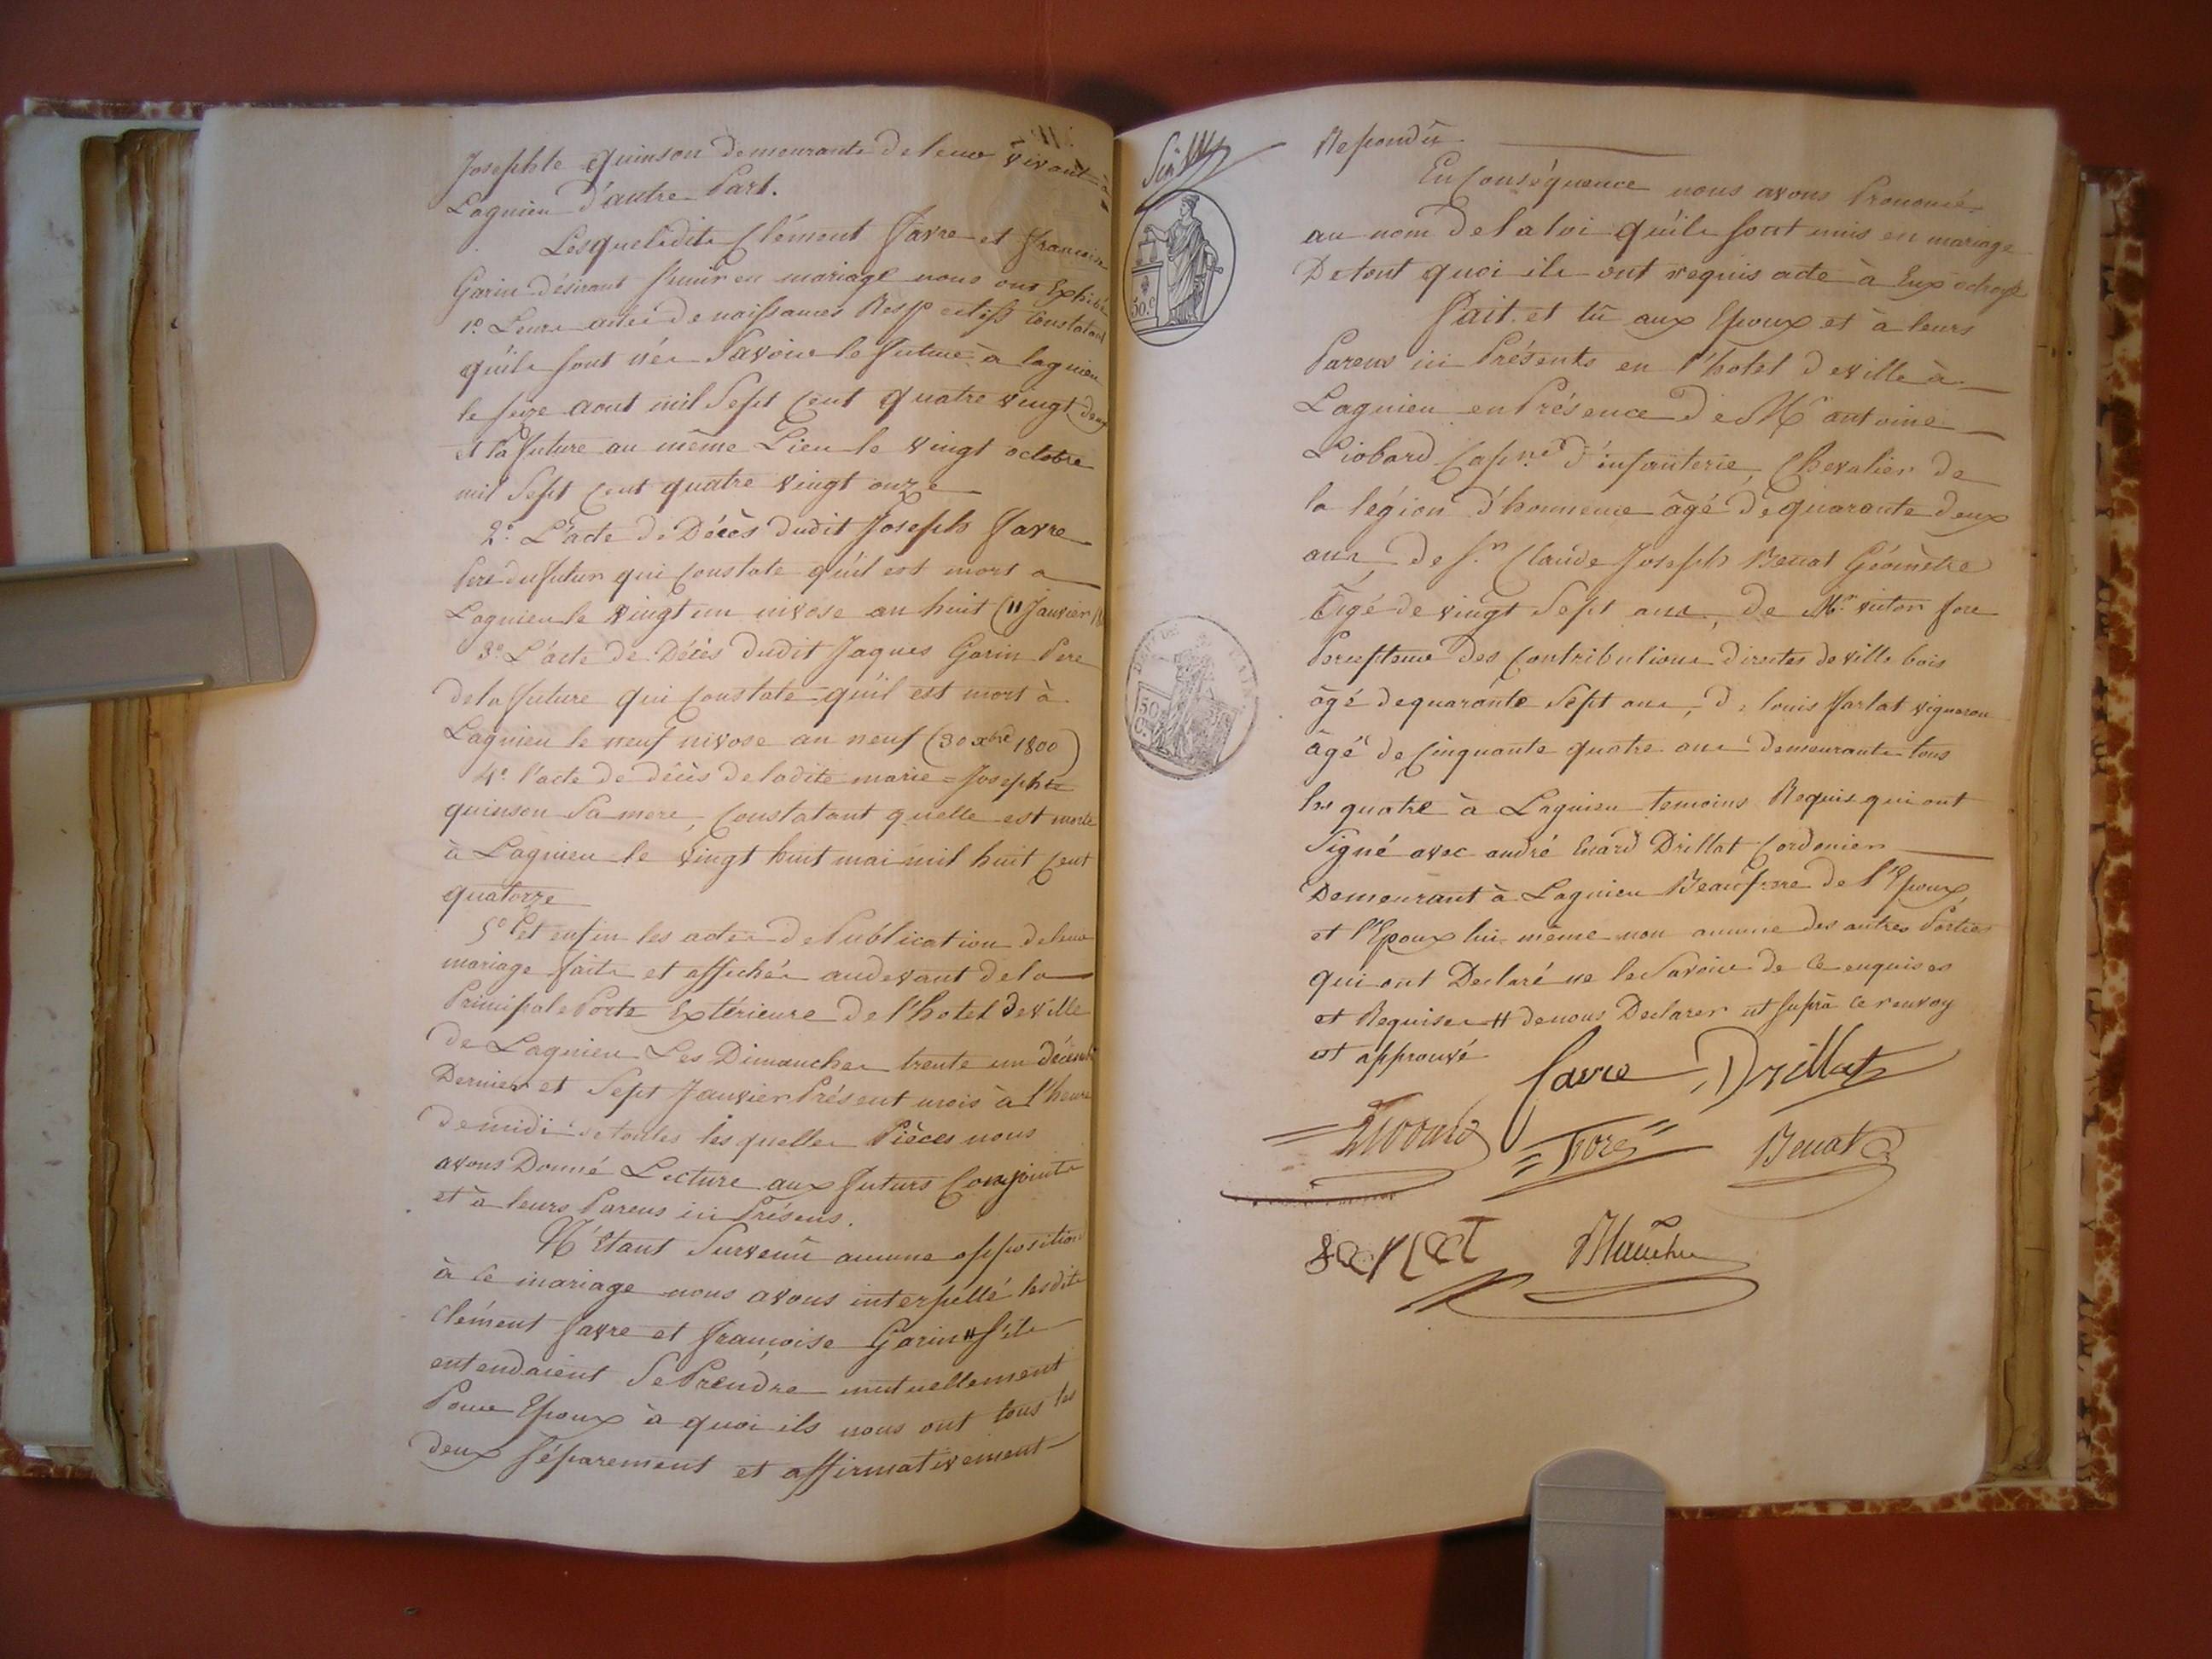 Josephte quinson demeurants de leur vivant à
Lagnieu d'autre Part.
Lesquels dits Clément favre et françoise
Garin désirant s'unir en mariage nous ont Exhibé
1º Leurs actes de naissances Respectifs Constatant
qu'ils sont nés Savoir le futur à lagnieu
le seize aout mil Sept Cent quatre vingt deux
et la future au même Lieu le vingt octobre
mil Sept Cent quatre vingt onze
2º L'acte de Décès dudit Joseph favre
Pere du futur qui Constate qu'il est mort a
Lagnieu le vingt un nivose an huit (11 Janvier
3º L'acte de Décès dudit Jaques Garin Pere
de la future qui Constate qu'il est mort à
Lagnieu le neuf nivose an neuf (30 xbre 1800)
4º l'acte de décès de ladite marie = Josephte
quinson Sa mere, Constatant quelle est morte
à Lagnieu le vingt huit mai mil huit Cent
quatorze
5º et enfin les actes de Publication de leur
mariage faits et affichés audevant de la
Principale Porte Extérieure de l'hotel de ville
de Lagnieu Les Dimanches trente un décembre
Dernier et Sept Janvier Présent mois à l'heure
de midi de toutes lesquelles Pièces nous
avons Donné Lecture aux futurs Conjoints
et à leurs Parens ici Présens.
N'étant Survenû aucune opposition
à Ce mariage nous avons interpellé lesdits
Clément favre et françoise Garin # s'ils
entendaient Se Prendre mutuellement
Pour Epoux à quoi ils nous ont tous les
deux séparement et affirmativement
Repondû
En Conséquence nous avons Prononcé
au nom de la loi qu'ils sont unis en mariage
De tout quoi ils ont requis acte à Eux octroyé
Fait et lû aux Epoux et à leurs
Parens ici Présents en l'hotel de ville à
Lagnieu en Présence de Mr antoine
Liobard Capne d'infanterie, Chevalier de
la légion d'honneur âgé de quarante deux
ans, de Sr Claude Joseph Benat Géomètre
âgé de vingt Sept ans, de Mr victor fore
Percepteur des Contributions directes de villebois
âgé de quarante Sept ans, de louis farlat vigneron
âgé de Cinquante quatre ans demeurants tous
les quatre à Lagnieu temoins Requis qui ont
Signé avec andré Drillat Cordonier
Demeurant à Lagnieu Beaufrere de l'Epoux
et l'Epoux lui même non aucune des autres Parties
qui ont Declaré ne le Savoir de Ce enquises
et Requises # de nous Declarer ut suprà Ce renvoy
est approuvé
favre Drillat
Liobard Fore Benat
50.C
DEP. DE L'AIN